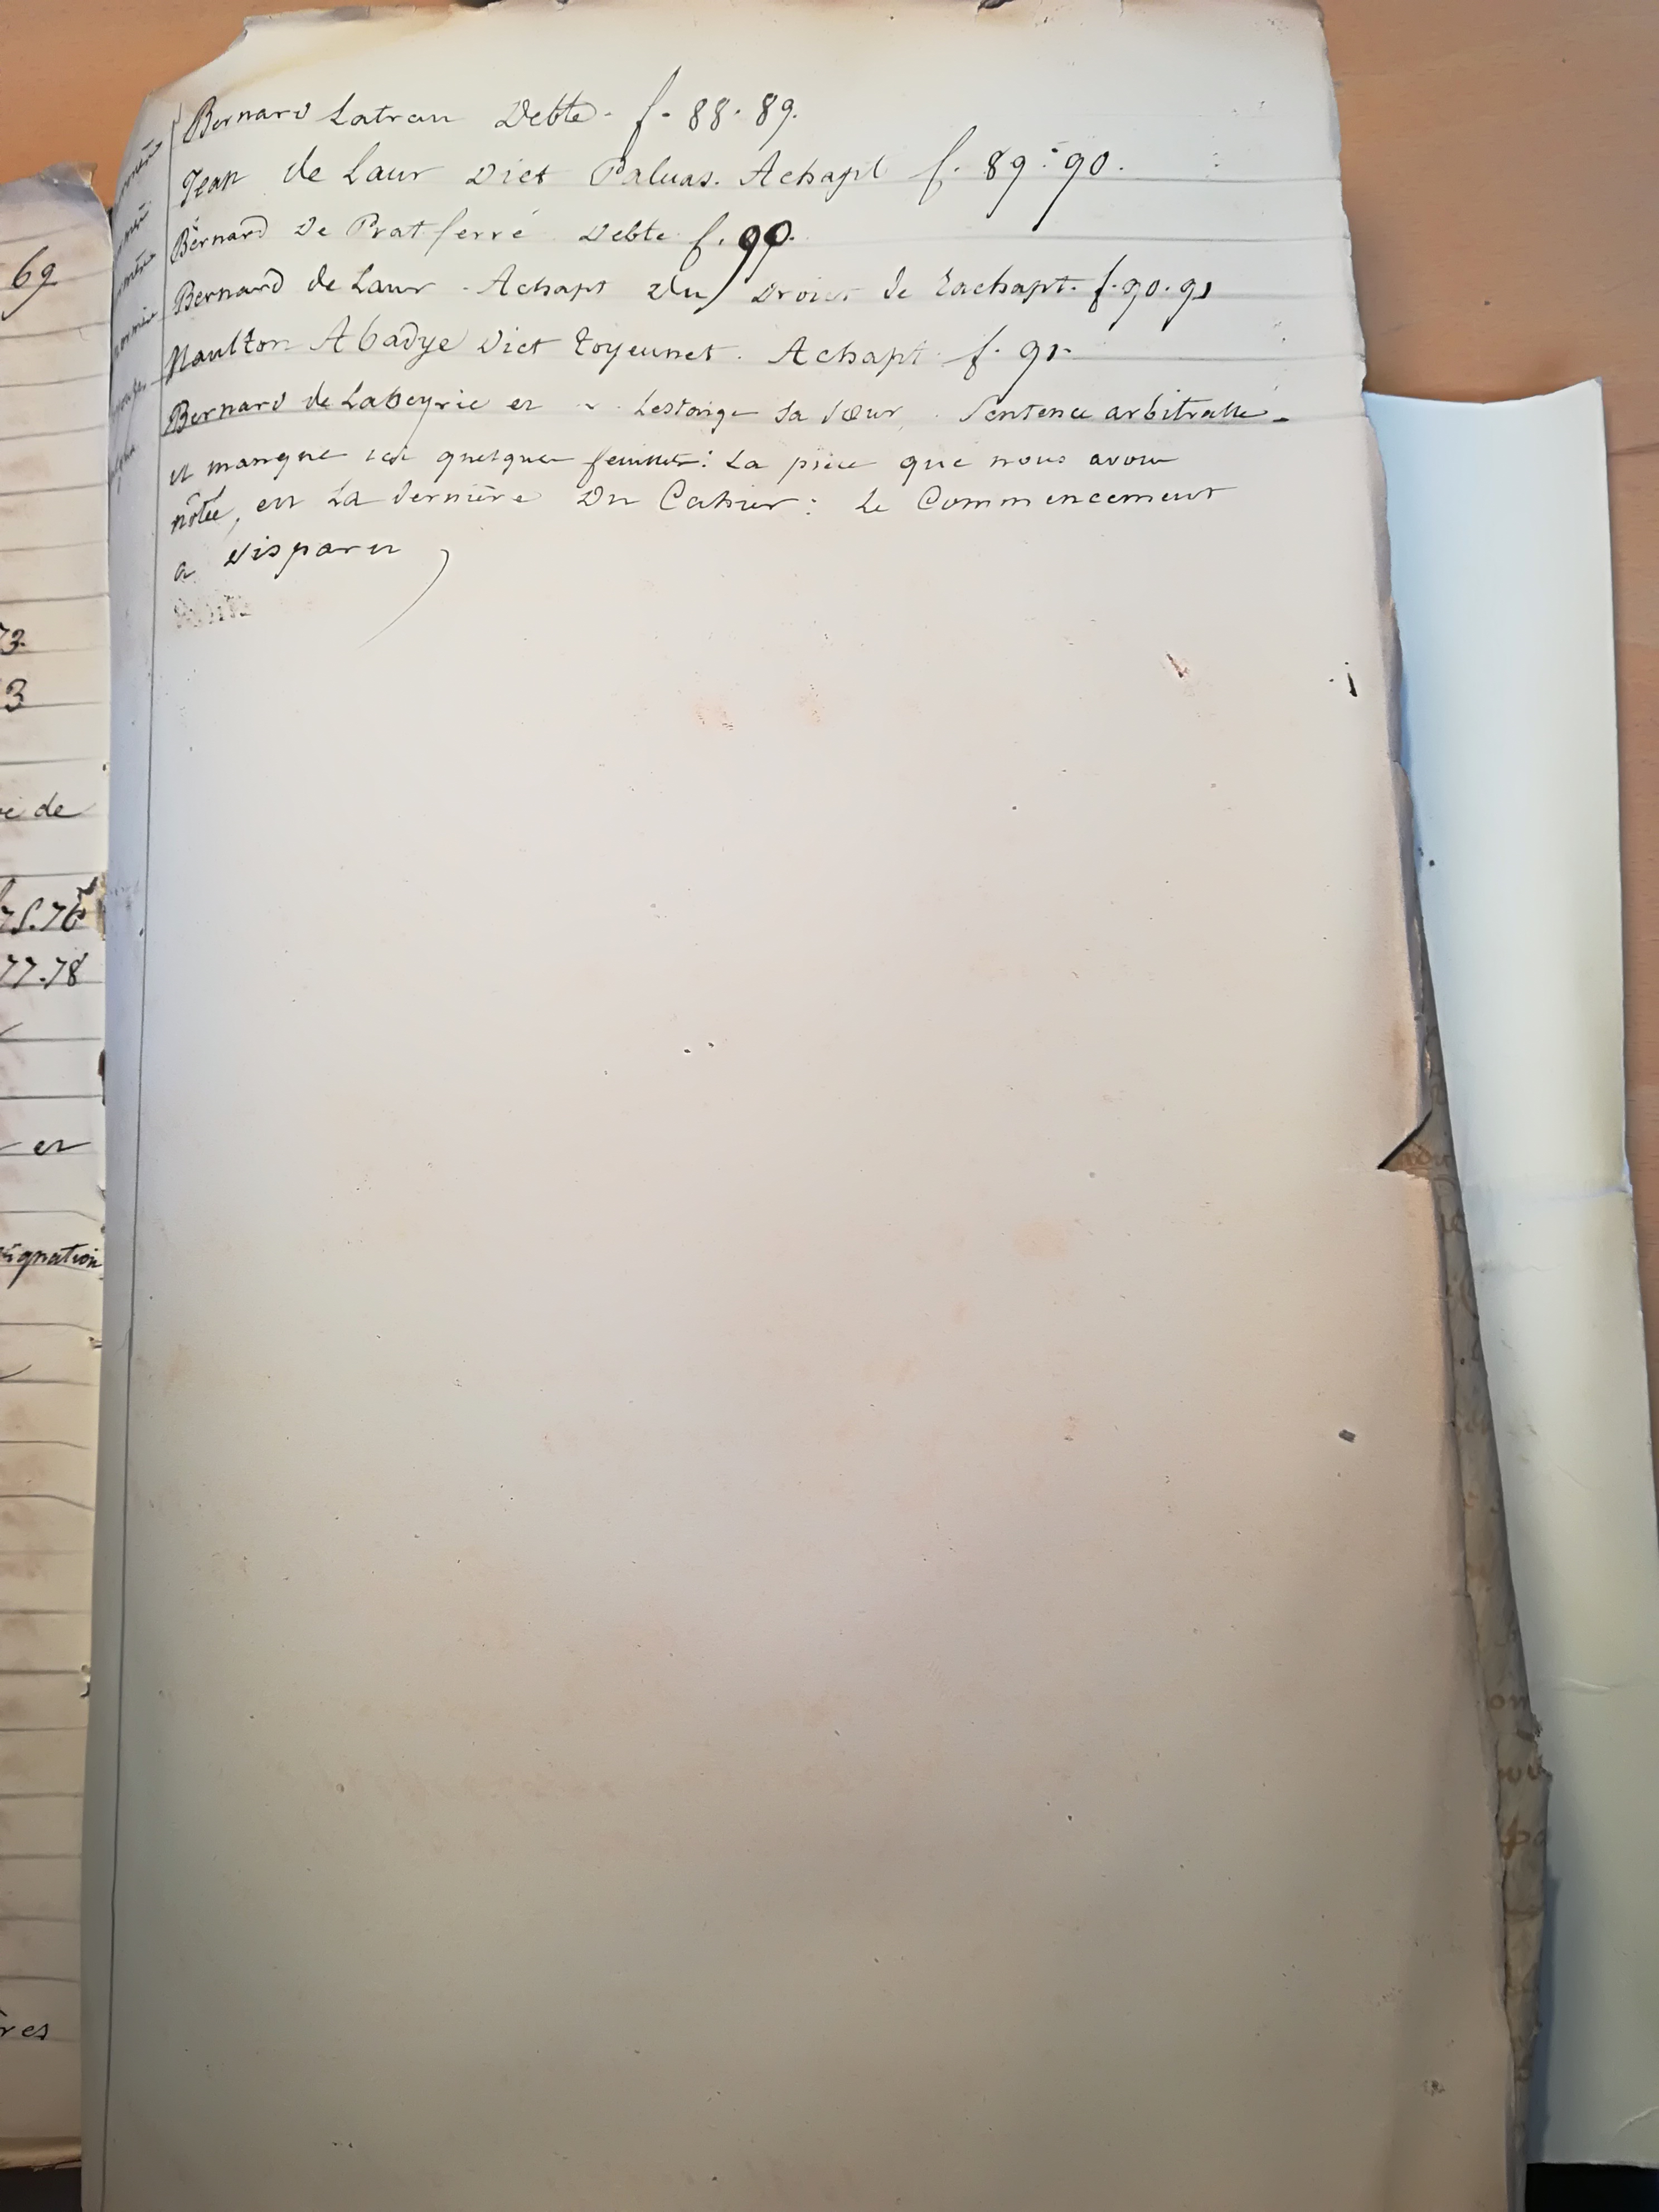 Bernard Latrau Debte. f. 88. 89.
Jean de Laur Dict Paluas. Achapt f. 89. 90.
Bernard De Pratferré Debte f. 90.
Bernard de Laur. Achapt Du Droit de Rachapt. f. 90. 91
Naulton Abadye Dict Toyeunet. Achapt f. 91.
Bernard de Labeyrie et Lestonge sa sœur, Sentence arbitralle.
Il manque ici quelques feuillets: La pièce que nous avons
notée, est La dernière Du Cahier: Le Commencement
a Disparu
69
73.
3
de
75.76
77.78
et
ignation
res